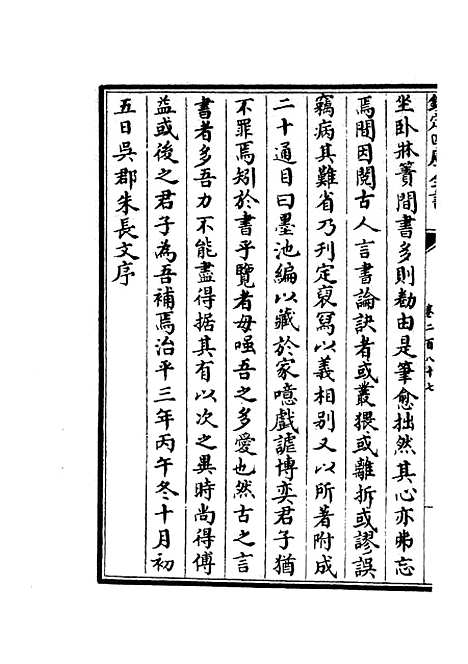 欽定四庫全書
卷二百八十七
坐卧牀簀間書多則勌由是筆愈拙然其心亦弗忘
焉閒因閲古人言書論訣者或叢猥或離折或謬誤
竊病其難省乃刊定裒冩以義相别又以所著附成
二十通目曰墨池編以藏於家噫戲謔博奕君子猶
不罪焉矧於書乎覽者毋嗤吾之多愛也然古之言
書者多吾力不能盡得据其有以次之異時尚得傳
益或後之君子為吾補焉治平三年丙午冬十月初
五日吳郡朱長文序